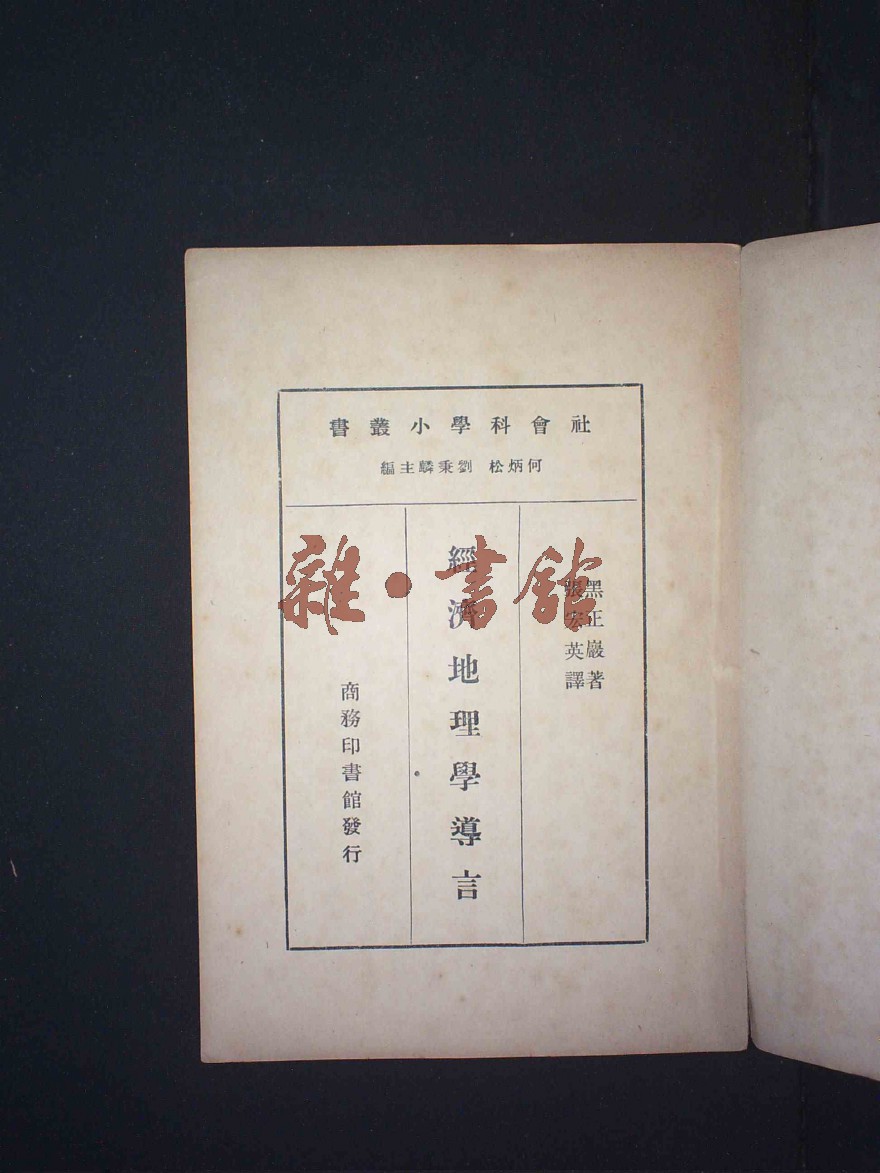 社會科學小叢書
何炳松 劉秉麟主編
黑正巖著
張宏英譯
經濟地理學導言
商務印書館發行
雜·書館